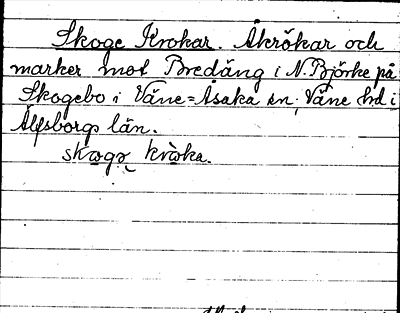 Skoge Krokar. Åkrökar och
marker mot Bredäng i N. Björke på
Skogebo i Väne-Åsaka sn; Väne hd i
Älfsborgs län.
skogə kròka.